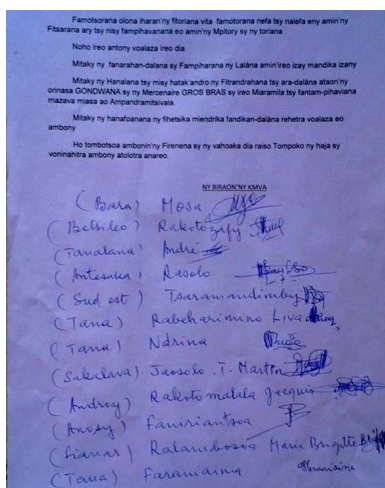 Famotsorana olona iharan'ny fitoriana vita famotorana nefa tsy nalefa eny amin'ny
Fitsarana ary tsy nisy fampihavanana eo amin'ny Mpitory sy ny toriana
Noho ireo antony voalaza ireo dia
Mitaky ny fanarahan-dalana sy Fampiharana ny Lalàna amin'ireo izay mandika izany
Mitaky ny Hanalana tsy misy hatak'andro ny Fitrandrahana tsy ara-dalàna ataon'ny
orinasa GONDWANA sy ny Mercenaire GROS BRAS sy ireo Miaramila tsy fantam-pihaviana
mazava miasa ao Ampandramitsivala.
Mitaky ny hanafoanana ny fihetsika miendrika fandikan-dalàna rehetra voalaza eo
ambony
Ho tombotsoa ambonin'ny Firenena sy ny vahoaka dia raiso Tompoko ny haja sy
voninahitra ambony atolotra anareo.
NY BIRAON'NY KMVA
(Bara) Mosa
(Betsileo) Rakotozafy
(Tanalana) André
(Antesaka) Rasolo
(Sud est) Tsaramandimby
(Tana) Rabeharimino Liva
(Tana) Ndrina
(Sakalava) Jaosolo .T. Martin
(Androy) Rakotomalala Jacquis
(Anosy) Famiriantsoa
(Fianar) Ralambosoa Marie Brigitte
(Tana) Faraniaina Faraniaina